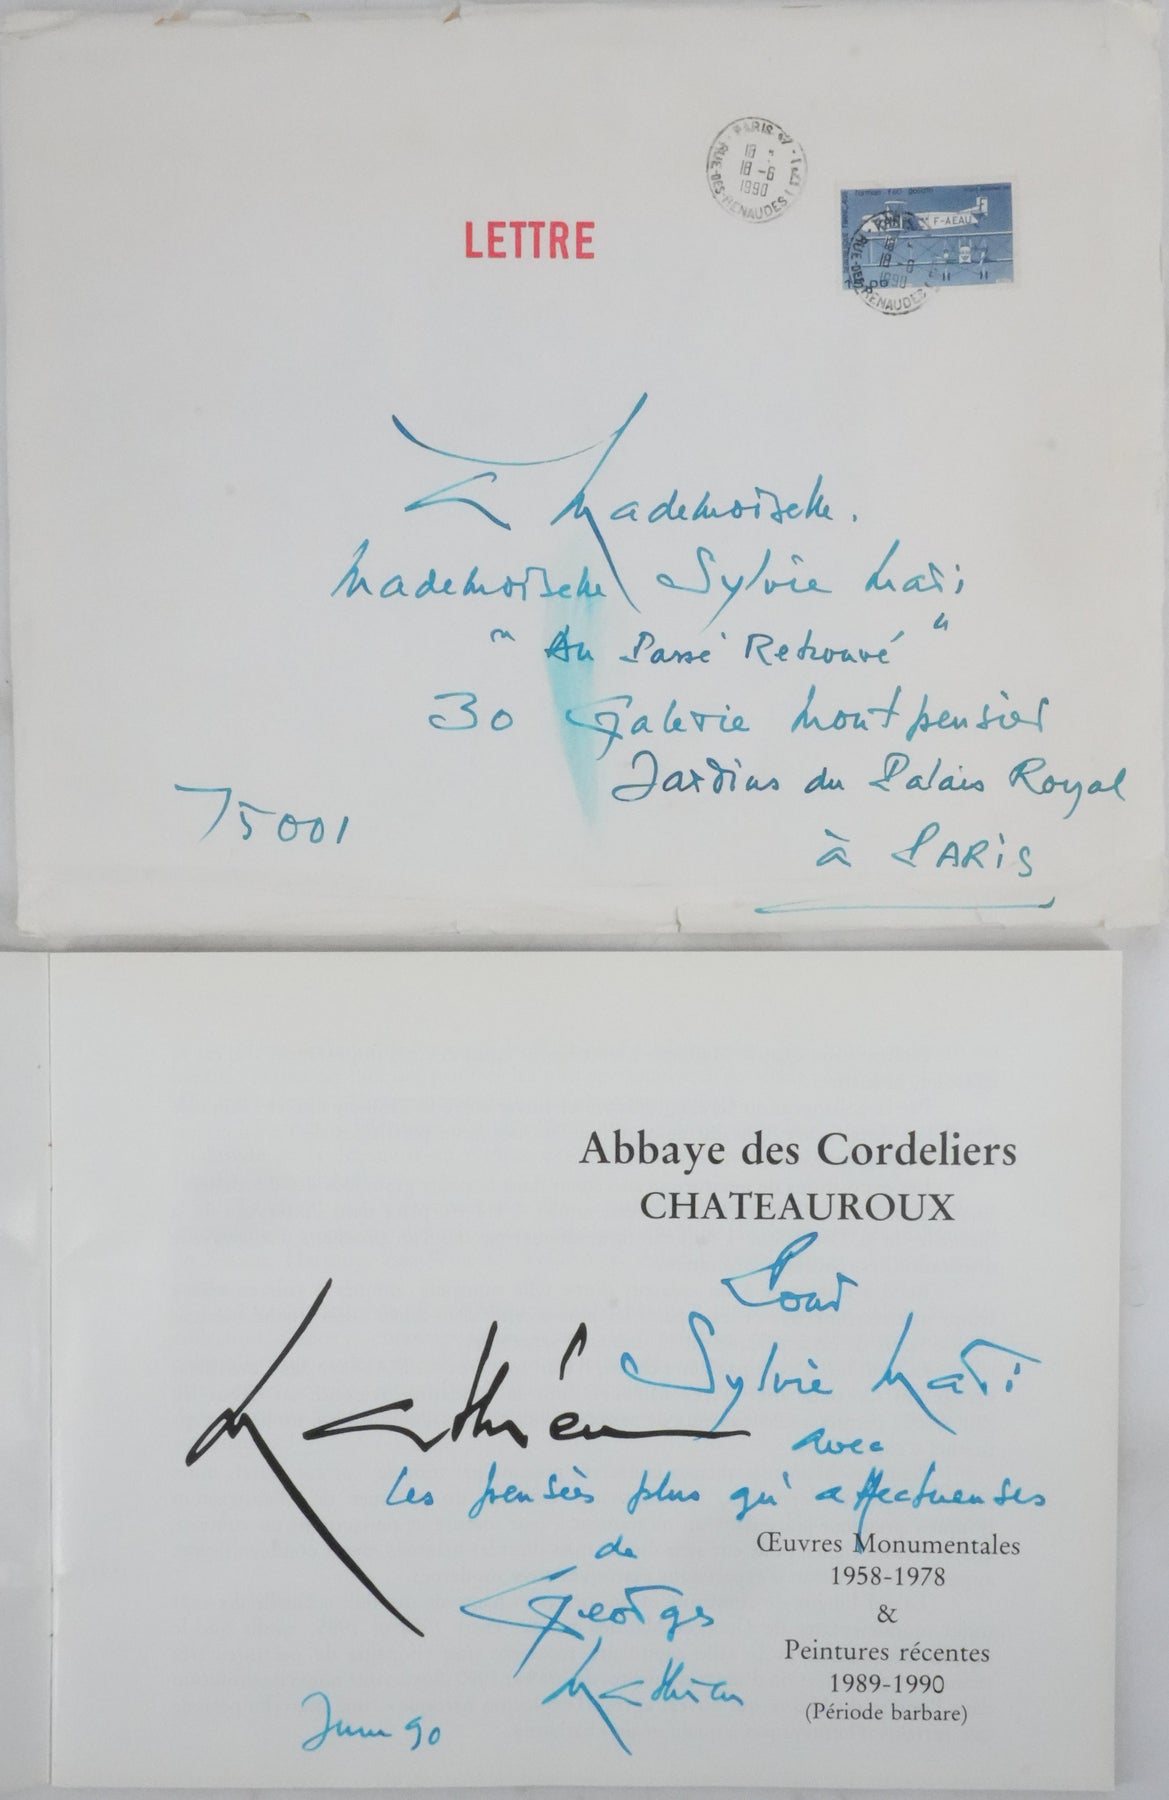 PARIS 17
18-6
1990
RUE-DES-RENAUDES
LETTRE
F-AEAU
PARIS
1990
RUE-DES-RENAUDES
à Mademoiselle.
Mademoiselle Sylvie Mari
"Au Passé Retrouvé"
30 Galerie Montpensier
Jardins du Palais Royal
75001
à PARIS
Abbaye des Cordeliers
CHATEAUROUX
Pour
Sylvie Mari
Mathieu
avec
les pensées plus qu'affectueuses
de
Georges
Mathieu
Juin 90
Œuvres Monumentales
1958-1978
&
Peintures récentes
1989-1990
(Période barbare)